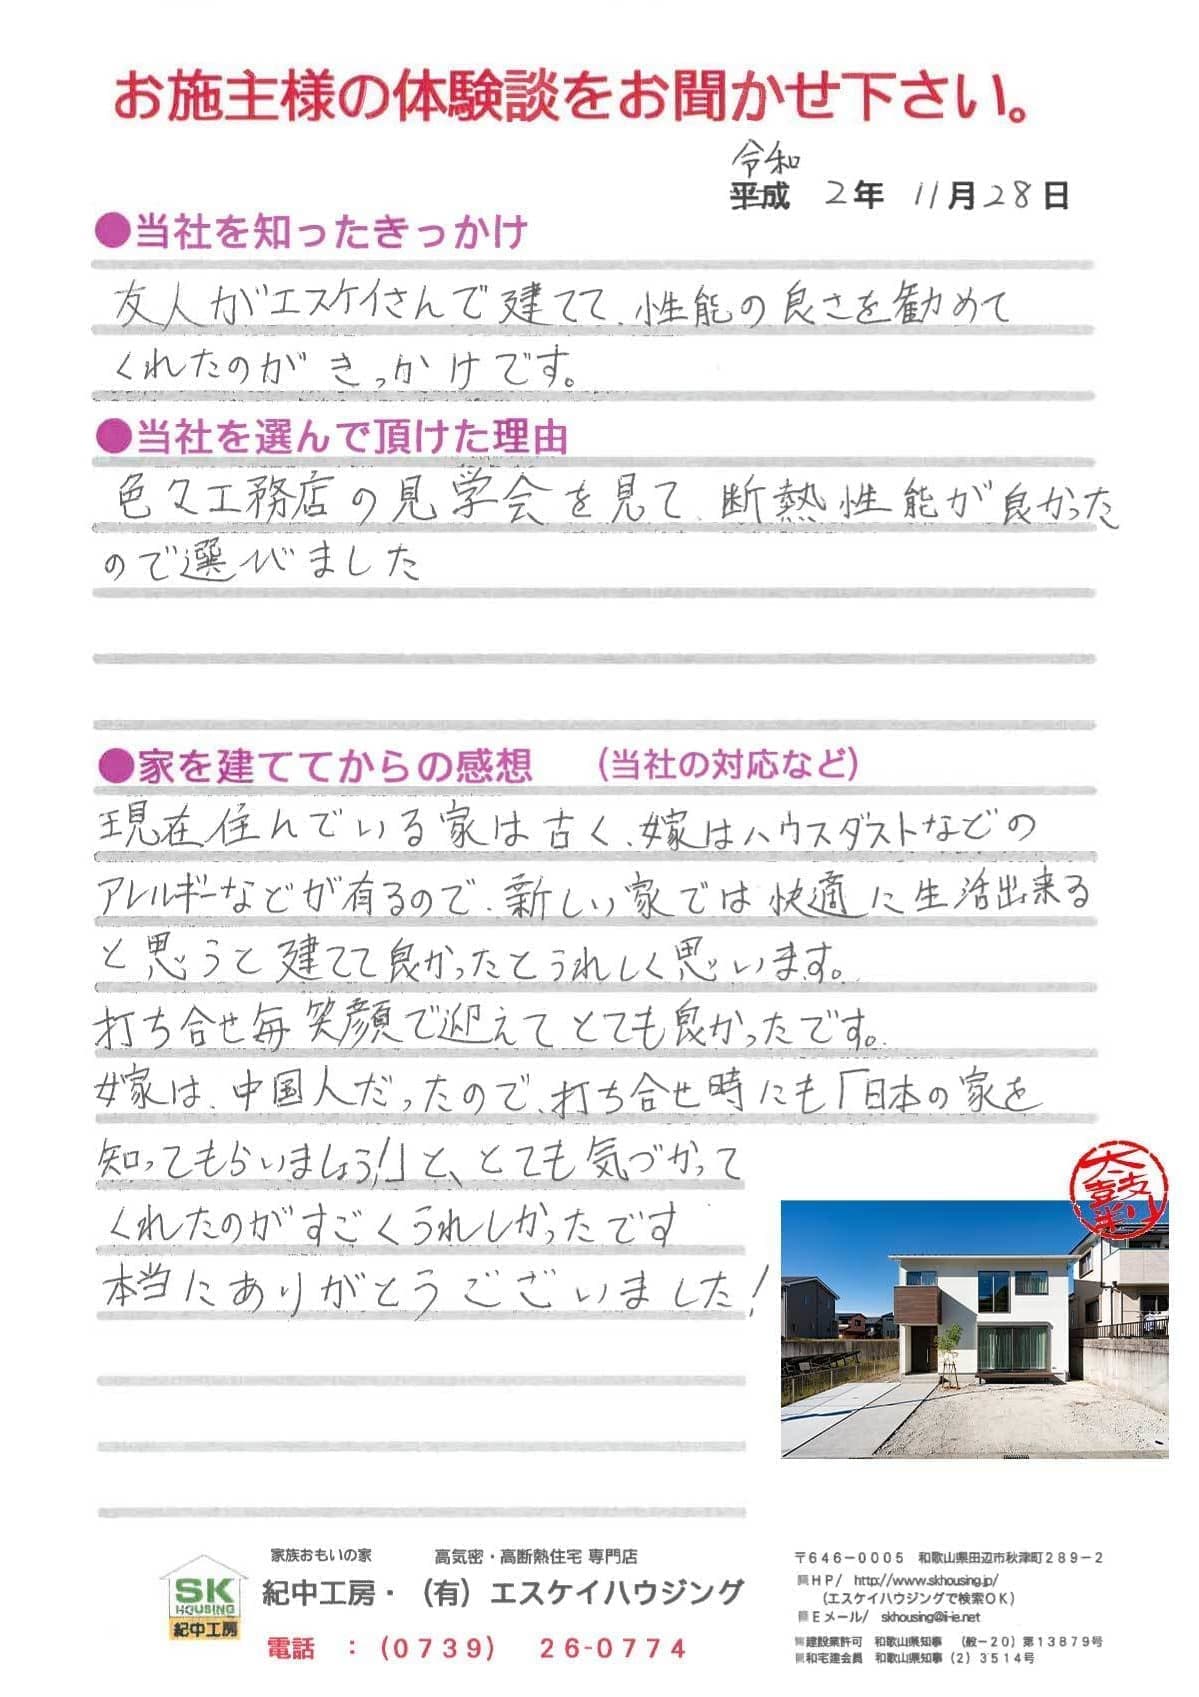 お施主様の体験談をお聞かせ下さい。
令和
平成 2年 11月28日
●当社を知ったきっかけ
友人がエスケイさんで建てて、性能の良さを勧めて
くれたのがきっかけです。
●当社を選んで頂けた理由
色々工務店の見学会を見て、断熱性能が良かった
ので選びました
●家を建ててからの感想 (当社の対応など)
現在住んでいる家は古く、嫁はハウスダストなどの
アレルギーなどが有るので、新しい家では快適に生活出来る
と思うと建てて良かったとうれしく思います。
打ち合せ毎笑顔で迎えてとても良かったです。
嫁は、中国人だったので、打ち合せ時にも「日本の家を
知ってもらいましょう!」と、とても気づかって
くれたのがすごくうれしかったです
本当にありがとうございました!
家族おもいの家 高気密・高断熱住宅 専門店
SK
HOUSING
紀中工房
紀中工房・(有)エスケイハウジング
電話 :(0739) 26-0774
〒646-0005 和歌山県田辺市秋津町289-2
HP/ http://www.skhousing.jp/
(エスケイハウジングで検索OK)
Eメール/ skhousing@ii-ie.net
建設業許可 和歌山県知事 (般-20)第13879号
和宅建会員 和歌山県知事(2)3514号